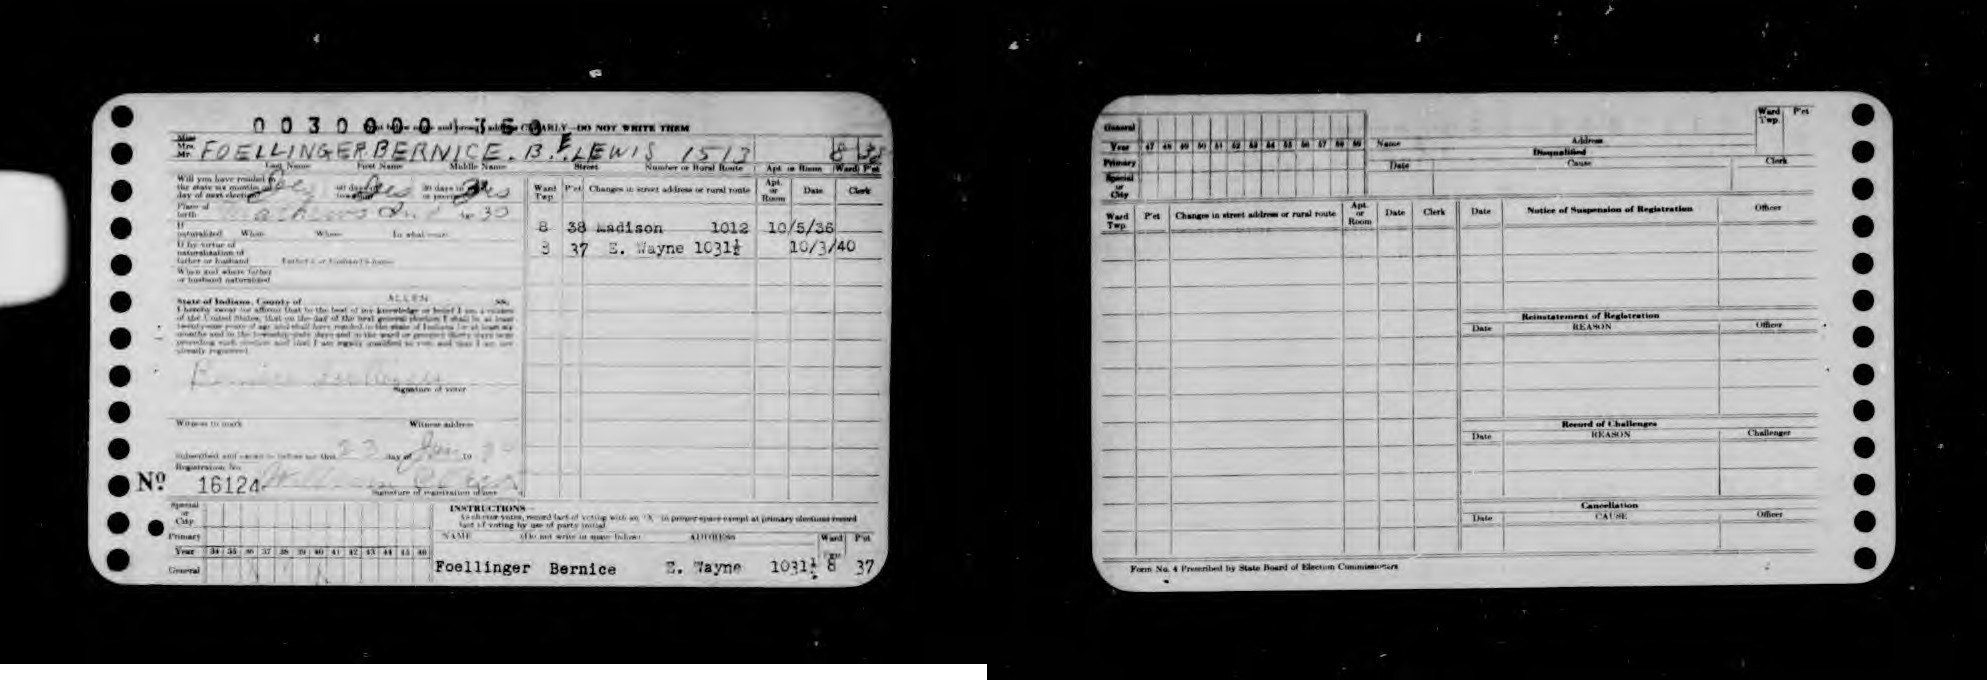 0 0 3 0 0 0 0 1 3 5 0
CLEARLY—DO NOT WRITE THEM
Miss
Mrs.
Mr. FOELLINGER BERNICE. B. E. LEWIS 1513 8 38
Last Name First Name Middle Name Street Number or Rural Route Apt. or Room Ward P'ct
Will you have resided in
the state six months on
day of next election? Yes 60 days in township Yes 30 days in or precinct Yes
Place of
birth Mathews Ind Age 30
If
naturalized When Where In what court
If by virtue of
naturalization of
father or husband Father's or husband's name
When and where father
or husband naturalized
State of Indiana, County of ALLEN SS:
I hereby swear (or affirm) that to the best of my knowledge or belief I am a citizen
of the United States, that on the day of the next general election I shall be at least
twenty-one years of age and shall have resided in the state of Indiana for at least six
months and in the township sixty days and in the ward or precinct thirty days next
preceding such election and that I am legally qualified to vote and that I am not
already registered.
Bernice
Signature of voter
Witness to mark Witness address
Subscribed and sworn to before me this 23 day of Jan 19 34
Registration No.
Nº 16124 William
Signature of registration officer
Ward Twp. P'ct Changes in street address or rural route Apt. or Room Date Clerk
8 38 Madison 1012 10/5/36
8 37 E. Wayne 1031½ 10/3/40
Special
or
City
Primary
Year 34 35 36 37 38 39 40 41 42 43 44 45 46
General
INSTRUCTIONS—
As elector votes, record fact of voting with an "X" in proper space except at primary elections record
fact of voting by use of party initial
NAME (Do not write in space below) ADDRESS Ward Twp P'ct
Foellinger Bernice E. Wayne 1031½ 8 37
General
Year 47 48 49 50 51 52 53 54 55 56 57 58 59
Primary
Special
or
City
Ward Twp. P'ct
Name Address
Disqualified
Date Cause Clerk
Ward Twp. P'ct Changes in street address or rural route Apt. or Room Date Clerk
Date Notice of Suspension of Registration Officer
Reinstatement of Registration
Date REASON Officer
Record of Challenges
Date REASON Challenger
Cancellation
Date CAUSE Officer
Form No. 4 Prescribed by State Board of Election Commissioners